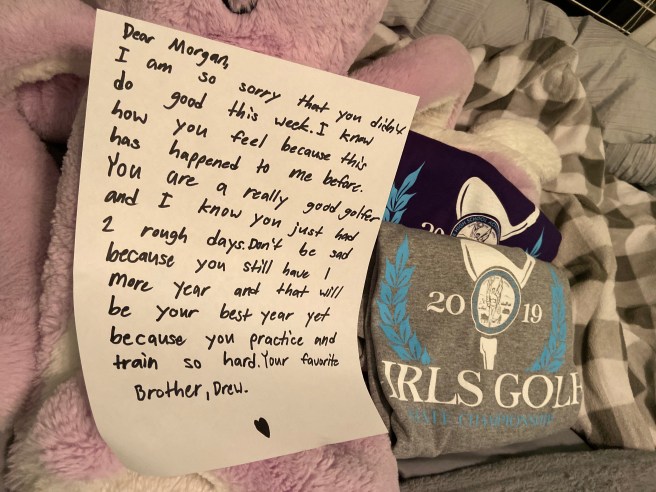 Dear Morgan,
I am so sorry that you didn't
do good this week. I know
how you feel because this
has happened to me before.
You are a really good golfer
and I know you just had
2 rough days. Don't be sad
because you still have 1
more year and that will
be your best year yet
because you practice and
train so hard. Your favorite
Brother, Drew.
20
20 19
IRLS GOLF
CHAMPIONSHIP